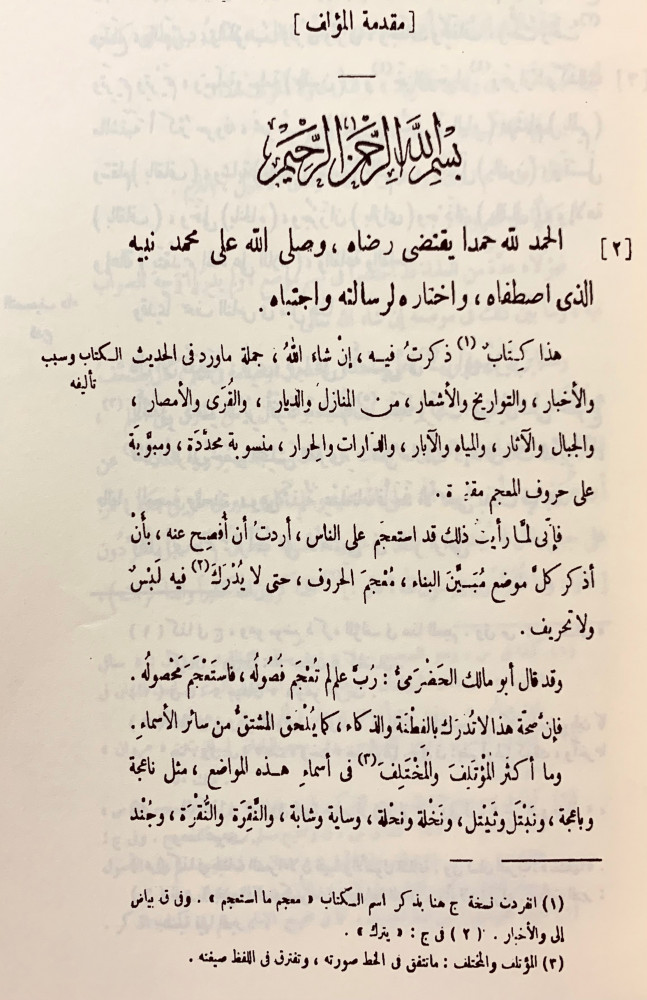 [ مقدمة المؤلف ]
بسم الله الرحمن الرحيم
[٢] الحمد لله حمدا يقتضى رضاه ، وصلى الله على محمد نبيه
الذى اصطفاه ، واختاره لرسالته واجتباه .
هذا كِتَابٌ (١) ذكرتُ فيه ، إنْ شاء اللهُ ، جملة ماورد فى الحديث
الكتاب وسبب
تأليفه
والأخبار ، والتواريخ والأشعار ، من المنازل والديار ، والقُرَى والأمصار ،
والجبال والآثار ، والمياه والآبار ، والدارات والحِرار ، منسوبة محدَّدَة ، ومبوَّبَة
على حروف المعجم مقيَّدة .
فإنّى لمّا رأيتُ ذلك قد استعجَم على الناس ، أردتُ أن أُفصِح عنه ، بأَنْ
أذكر كلَّ موضع مُبَيَّنَ البناء ، مُعْجَمَ الحروف ، حتى لا يُدْرَكَ (٢) فيه لَبْسٌ
ولا تحريف .
وقد قال أبو مالك الحَضْرَمىُّ : رُبَّ علم لم تُعْجَم فُصُولُه ، فاستَعْجَمَ مَحْصولُه .
فإنَّ صحّة هذا لا تُدرَك بالفِطْنة والذكاء ، كما يُلْحَق المشتقُّ من سائر الأسماءِ .
وما أكثر المؤْتَلِفَ والمُخْتَلِفَ (٣) فى أسماءِ هذه المواضع ، مثل ناعجة
وباعجة ، ونَبْتَل وثَيْتل ، ونَخْلة ونحلة ، وساية وشابة ، والنَّقِرَة والنُّقْرَة ، وجُنْد
(١) انفردت نسخة ج هنا بذكر اسم الكتاب « معجم ما استعجم » . وفى ق بياض
إلى والأخبار . (٢) فى ج : « يترك » .
(٣) المؤتلف والمختلف : ماتتفق فى الخط صورته ، وتفترق فى اللفظ صيغته .